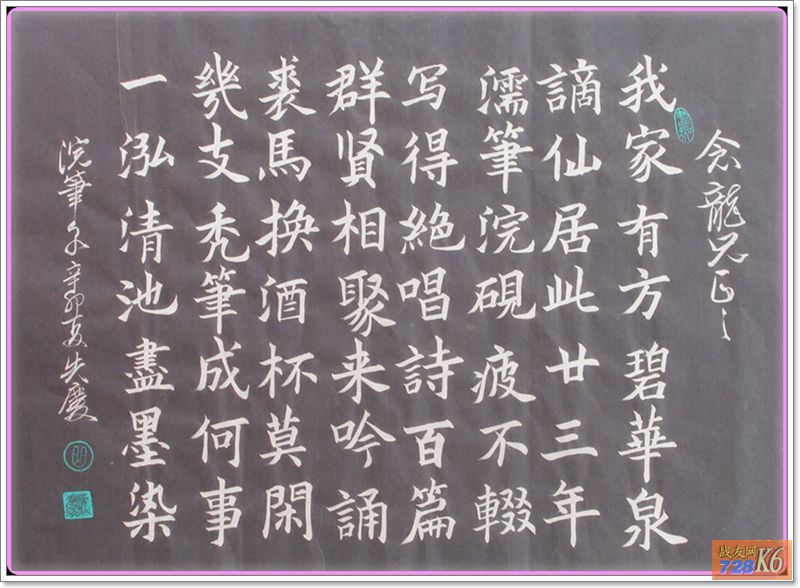 念龍兄正之
我家有方碧華泉
謫仙居此廿三年
濡筆浣硯疲不輟
写得絶唱詩百篇
群贤相聚来吟誦
裘馬换酒杯莫閑
幾支秃筆成何事
一泓清池盡墨染
浣筆 辛卯夏 慶
战友网
728 K6